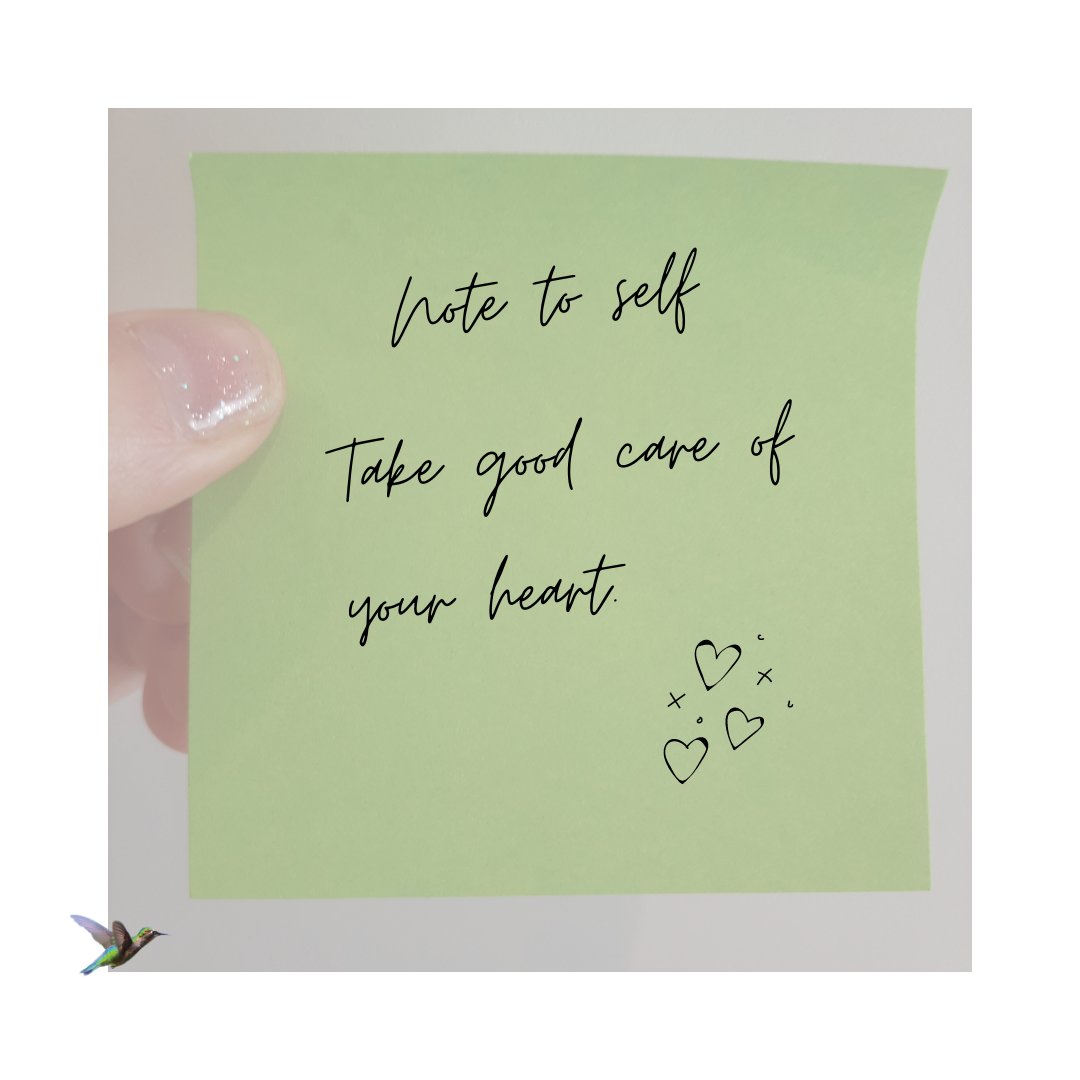 Note to self
Take good care of
your heart.